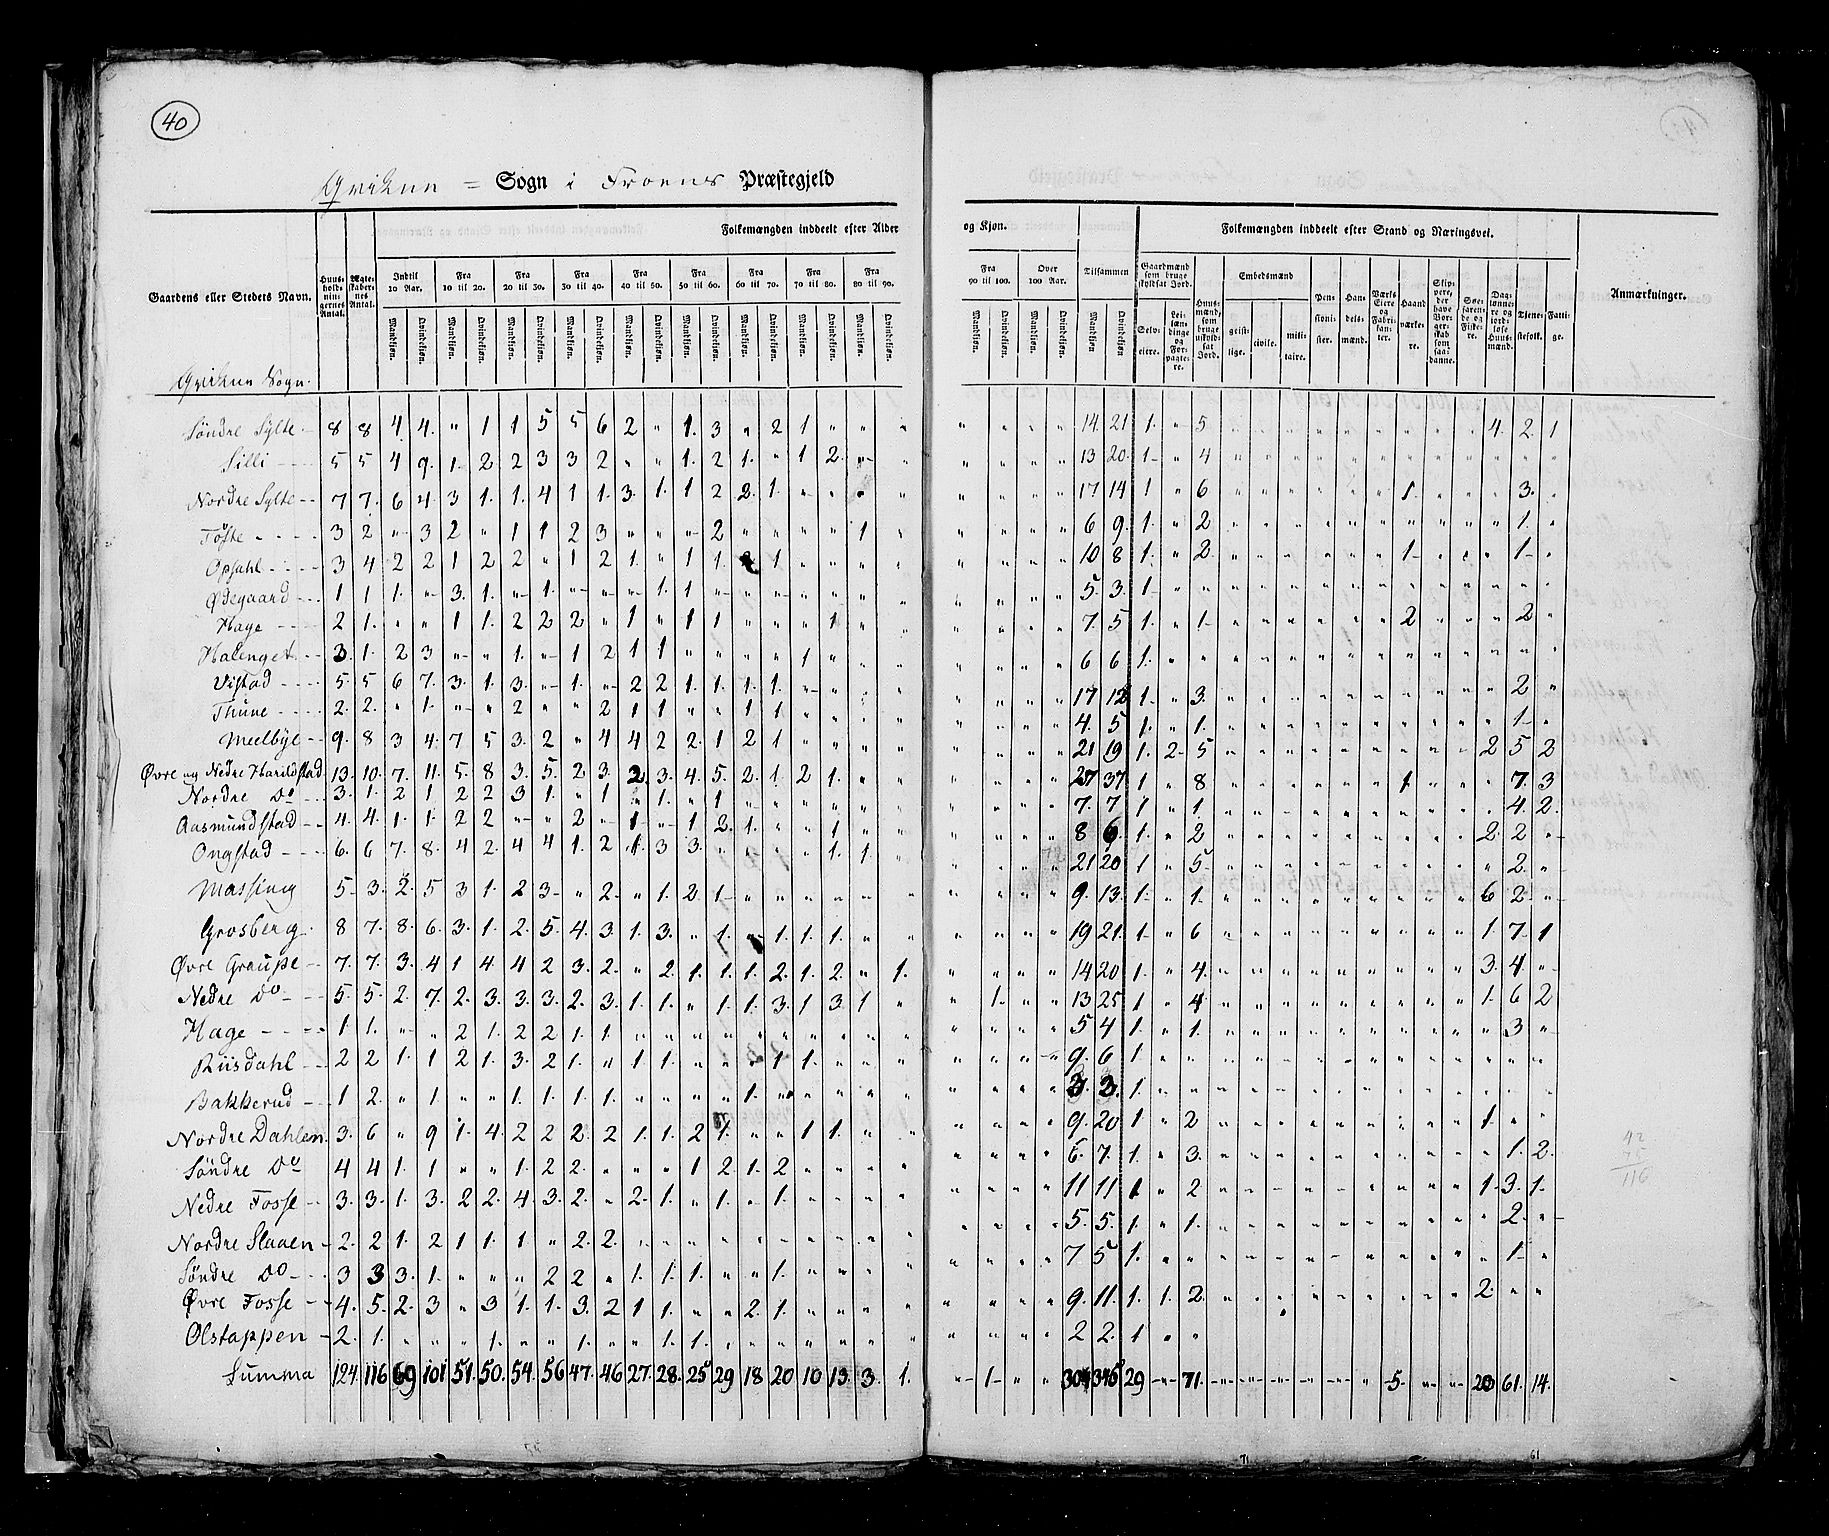 40
Qvikne = Sogn i Froens Præstegjeld
Gaardens eller Stedets Navn.
Huus-holdnin-gernes Antal.
Ægte-skaber-nes Antal.
Folkemængden inddeelt efter Alder og Kjøn.
Indtil 10 Aar. Fra 10 til 20. Fra 20 til 30. Fra 30 til 40. Fra 40 til 50. Fra 50 til 60. Fra 60 til 70. Fra 70 til 80. Fra 80 til 90. Fra 90 til 100. Over 100 Aar. Tilsammen
Mandkjøn. Qvindekjøn.
Folkemængden inddeelt efter Stand og Næringsvei.
Gaardmænd som bruge skyldsat Jord.
Selv-eiere.
Lei-lændinge og For-pagte-re.
Huus-mænd som bruge uskyld-sat Jord.
Embedsmænd
geist-lige. civile. mili-taire.
Pen-sioni-ster.
Han-dels-mænd.
Værks Eiere og Fabri-kan-ter.
Haand-værke-re.
Dag-lønne-re og jord-løse Huus-mænd.
Tjene-stefolk.
Fatti-ge.
Anmærkninger.
Qvikne Sogn.
Söndre Sylte 8 8 4 4 " 1 1 5 5 6 2 " 1 3 " 2 1 " " " 14 21 1 " 5 4 2 1
Silli 5 5 4 9 1 2 2 3 3 2 " " 1 2 1 " 1 2 " " 13 20 1 " 4
Nordre Sylte 7 7 6 4 3 1 1 4 1 1 3 1 1 2 2 1 " " " " 17 14 1 " 6 1 3
Töfte 3 2 " 3 2 " 1 1 2 3 " " " 2 " " " " 1 " 6 9 1 " 2 1
Opsahl 3 4 2 2 1 2 2 " 1 2 1 " 1 1 2 1 " " " " 10 8 1 " 2 1 1
Ødegaard 1 1 1 " 3 1 " 1 " " " 1 1 " " " " " " " 5 3 1
Hage 2 1 " " 1 1 2 2 2 " 1 " 1 1 " " " 1 " " 7 5 1 " 1 2 2
Halenget 3 1 2 3 " " 1 " 1 2 1 1 " " " " 1 " " " 6 6 1
Vistad 5 5 6 7 3 1 3 " 1 " 2 2 1 1 1 1 " " " " 17 12 1 " 3 2
Thune 2 2 " 1 " " 2 " " 2 1 1 " " 1 1 " " " " 4 5 1 " 1 1
Meelbye 9 8 3 4 7 5 3 2 " 4 4 2 2 1 2 1 " " " " 21 19 1 2 5 2 5 2
Øvre og Nedre Harildstad 13 10 7 11 5 8 3 5 2 3 2 3 4 5 2 1 2 1 " " 27 37 1 " 8 1 7 3
Nordre Do 3 1 2 1 2 2 3 1 " 1 " 1 " 1 " " " " " " 7 7 1 " 1 4 2
Aasmundstad 4 4 1 1 2 2 " " 2 " 1 " 1 2 1 " " 1 " " 8 6 1 " 2 2 2
Ongstad 6 6 7 8 4 2 4 4 1 2 1 3 3 " " " " 1 1 " 21 20 1 " 5 2
Massing 5 3 2 5 3 1 2 3 " 2 " 1 2 1 " " " " " " 9 13 1 " 1 6 2
Grosberg 8 7 8 6 3 1 2 5 4 3 1 3 " 1 " 1 1 1 " " 19 21 1 " 6 1 7 1
Øvre Graupe 7 7 3 4 1 4 4 2 3 2 " 2 1 1 1 2 1 2 " 1 14 20 1 " 4 3 4
Nedre Do 5 5 2 7 2 3 3 3 2 3 1 1 " 1 1 3 1 3 1 " " 1 " " 13 25 1 " 4 1 6 2
Hage 1 1 " " 2 1 2 2 1 1 " " " " " " " " " " 5 4 1 " 1 3
Riisdahl 2 2 1 1 2 1 3 2 1 " 1 1 " " " 1 1 " " " 9 6 1
Bakkerud 1 2 " 1 " " 1 1 1 1 " " " " 1 " " " " " 3 3 1
Nordre Dahlen 3 6 " 9 1 4 2 2 2 2 1 1 2 1 " " 1 1 " " 9 20 1 " 2 1
Söndre Do 4 4 1 1 " " 1 2 2 " " " 1 2 1 2 " " " " 6 7 1 " 3 1 2
Nedre Fosse 3 3 1 3 2 2 4 3 2 " 2 1 " 1 " 1 " " " " 11 11 1 " 2 1 3 1
Nordre Slaaen 2 2 1 2 1 1 1 " 2 2 " " " " " " " " " " 5 5 1 " 1 2
Söndre Do 3 3 3 1 " " " 2 2 " 1 1 1 " " 1 " " " " 7 5 1 1
Øvre Fosse 4 5 2 3 " 3 1 1 3 2 1 1 " " 2 1 " " " " 9 11 1 1 2 2
Olstappen 2 1 " " " 1 " " 1 " " 1 1 " " " " " " " 2 2 1
Summa 124 116 69 101 51 50 54 56 47 46 27 28 25 29 18 20 10 13 3 1 " 1 " " 304 345 29 " 71 5 20 61 14
42
45
116
71
61